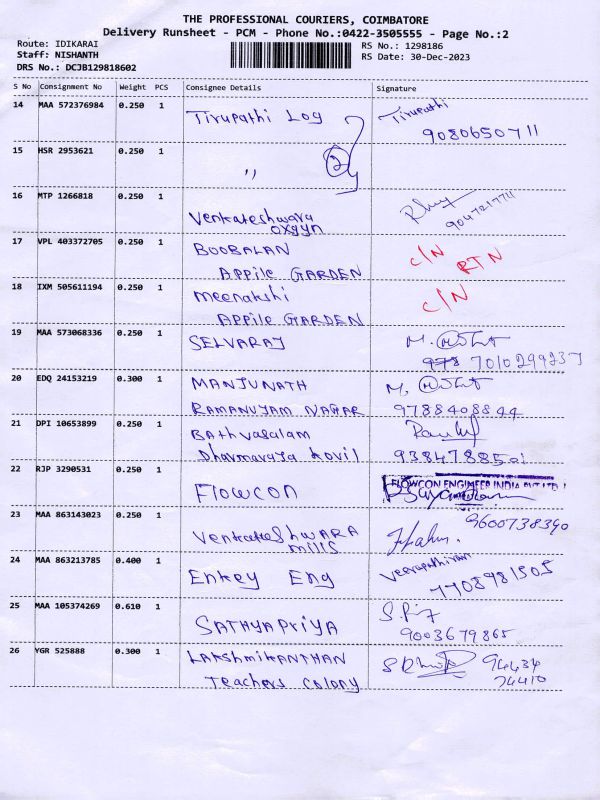 THE PROFESSIONAL COURIERS, COIMBATORE
Delivery Runsheet - PCM - Phone No.:0422-3505555 - Page No.:2
Route: IDIKARAI
Staff: NISHANTH
DRS No.: DCJB129818602
RS No.: 1298186
RS Date: 30-Dec-2023
S No Consignment No Weight PCS Consignee Details Signature
14 MAA 572376984 0.250 1 Tirupathi Log Tirupathi
9080650711
15 HSR 2953621 0.250 1 ,, 2
16 MTP 1266818 0.250 1 Venkateshwara
oxgyn 9047217711
17 VPL 403372705 0.250 1 BOOBALAN C/N RTN
APPILE GARDEN
18 IXM 505611194 0.250 1 Meenakshi C/N
APPILE GARDEN
19 MAA 573068336 0.250 1 SELVARAJ M.
978 7010299237
20 EDQ 24153219 0.300 1 MANJUNATH M.
RAMANUJAM NAGAR 9788408844
21 DPI 10653899 0.250 1 Bathvasalam
Dharmaraja kovil 9384788501
22 RJP 3290531 0.250 1 Flowcon FLOWCON ENGINEER INDIA PVT LTD
23 MAA 863143023 0.250 1 Venkateshwara 9600738390
mills
24 MAA 863213785 0.400 1 Enkey Eng Veerapathiran
7708981505
25 MAA 105374269 0.610 1 SATHYAPriYA
9003679865
26 YGR 525888 0.300 1 LAKSHMIKANTHAN 94434
Teachers Colony 74410